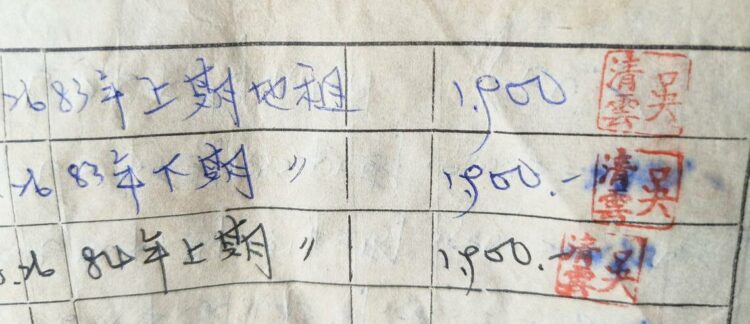 26 83年上期地租 1,900 吳清雲
26 83年下期 〃 1,900.- 吳清雲
.26 84年上期 〃 1,900.- 吳清雲